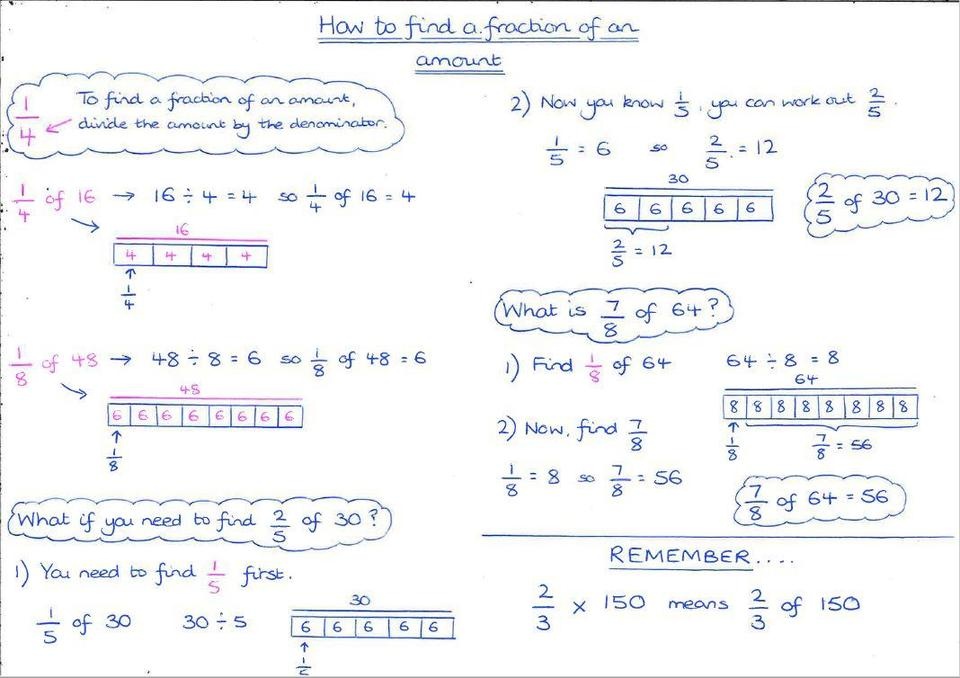 How to find a fraction of an
amount
1/4
To find a fraction of an amount,
divide the amount by the denominator.
1/4 of 16 → 16 ÷ 4 = 4 so 1/4 of 16 = 4
16
4 4 4 4
1/4
1/8 of 48 → 48 ÷ 8 = 6 so 1/8 of 48 = 6
48
6 6 6 6 6 6 6 6
1/8
What if you need to find 2/5 of 30?
1) You need to find 1/5 first.
1/5 of 30 30 ÷ 5
30
6 6 6 6 6
1/5
2) Now you know 1/5, you can work out 2/5.
1/5 = 6 so 2/5 = 12
30
6 6 6 6 6
2/5 = 12
2/5 of 30 = 12
What is 7/8 of 64?
1) Find 1/8 of 64 64 ÷ 8 = 8
64
8 8 8 8 8 8 8 8
1/8 7/8 = 56
2) Now, find 7/8
1/8 = 8 so 7/8 = 56
7/8 of 64 = 56
REMEMBER....
2/3 x 150 means 2/3 of 150